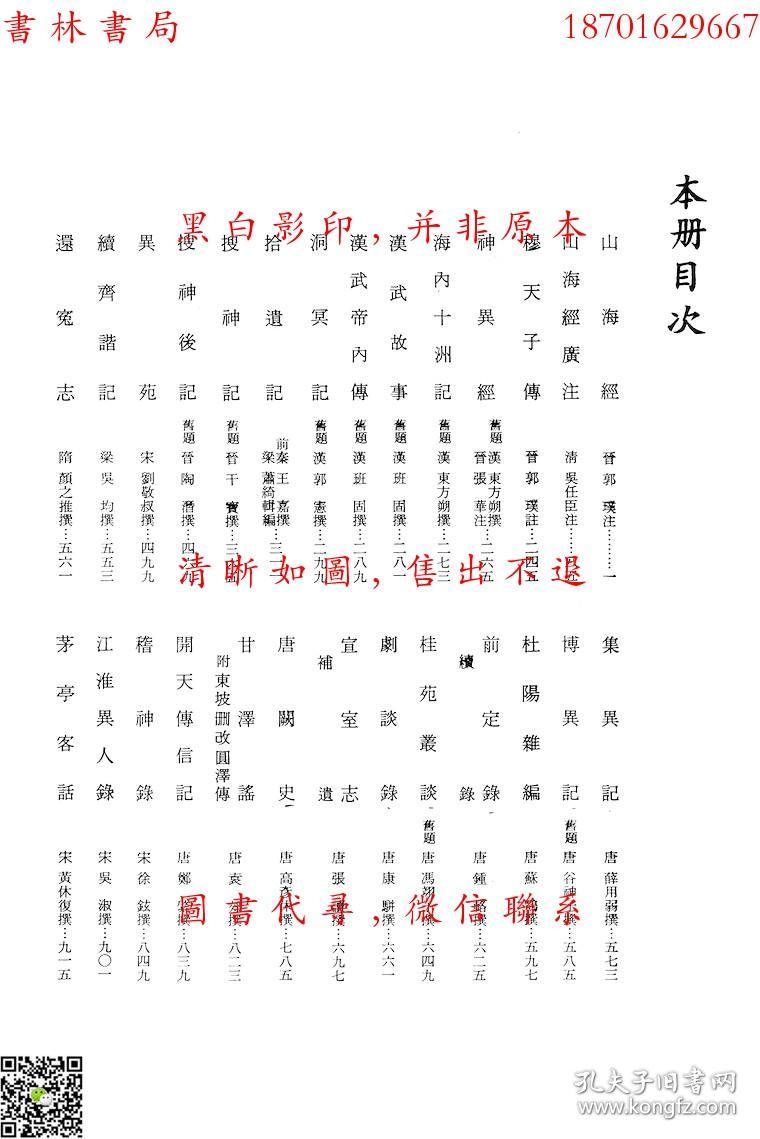 書林書局
18701629667
本册目次
山海經 晉 郭璞注………一
山海經廣注 清 吳任臣注
穆天子傳 晉 郭璞註…二四五
神異經 舊題 漢 東方朔撰 晉 張華注…二六五
海內十洲記 舊題 漢 東方朔撰…二七三
漢武故事 舊題 漢 班固撰…二八一
漢武帝內傳 舊題 漢 班固撰…二八九
洞冥記 舊題 漢 郭憲撰…二九九
拾遺記 前秦 王嘉撰 梁 蕭綺輯編…三一一
搜神記 舊題 晉 干寶撰…三
搜神後記 舊題 晉 陶潛撰…四
異苑 宋 劉敬叔撰…四九九
續齊諧記 梁 吳均撰…五五三
還寃志 隋 顏之推撰…五六一
集異記 唐 薛用弱撰…五七三
博異記 舊題 唐 谷神 撰…五八五
杜陽雜編 唐 蘇 撰…五九七
前定錄 續錄 唐 鍾 撰…六二五
桂苑叢談 舊題 唐 馮翊 撰…六四九
劇談錄 唐 康駢撰…六六一
宣室志 補遺 唐 張 撰…六九七
唐闕史 唐 高彥休撰…七八五
甘澤謠 附東坡刪改圓澤傳 唐 袁 撰…八二三
開天傳信記 唐 鄭 撰…八三九
稽神錄 宋 徐鉉撰…八四九
江淮異人錄 宋 吳淑撰…九〇一
茅亭客話 宋 黃休復撰…九一五
黑白影印,并非原本
清晰如圖,售出不退
圖書代尋,微信聯系
孔夫子旧书网
www.kongfz.com